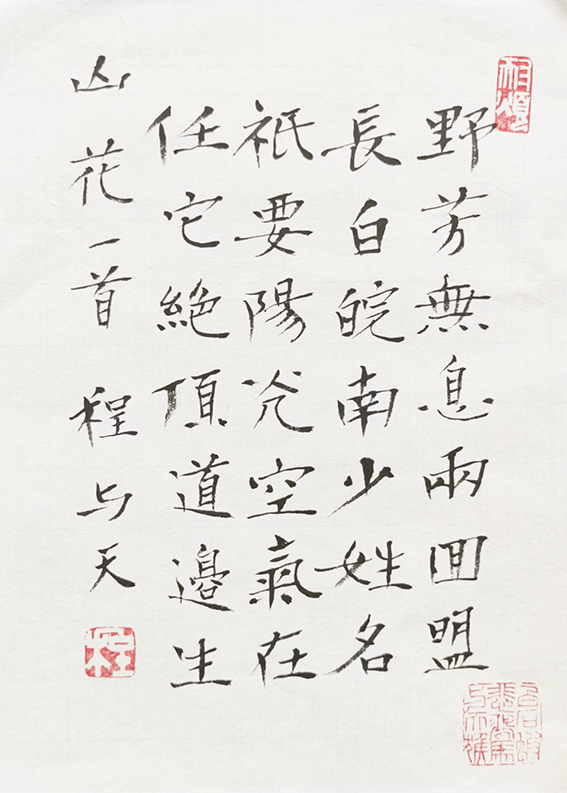 野芳無息兩囬盟
長白皖南少姓名
祇要陽光空氣在
任它絕頂道邊生
山花一首 程与天